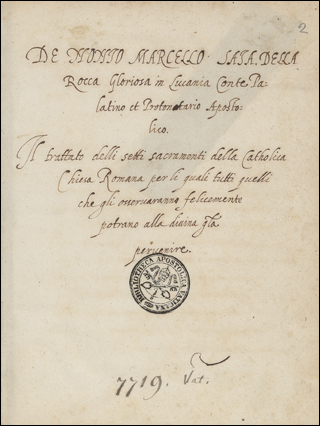 2
DE NONIO MARCELLO SAIA. DELLA
Rocca Gloriosa in Lucania Conte Pa-
latino et Protonotario Aposto-
lico.
Il trattato delli setti sacramenti della Catholica
Chiesa Romana per li quali tutti quelli
che gli osservaranno felicemente
potrano alla divina gła
pervenire.
BIBLIOTHECA APOSTOLICA VATICANA
7719. Vat.